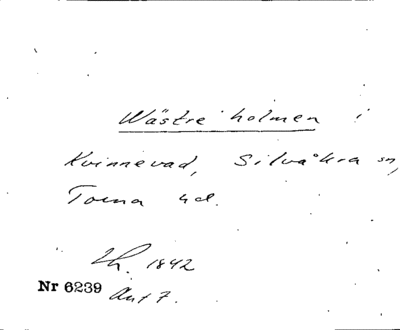 Wästre holmen i
Kvinnevad, Silvåkra sn,
Torna hd.
Lh. 1842
Nr 6239 Akt 7.